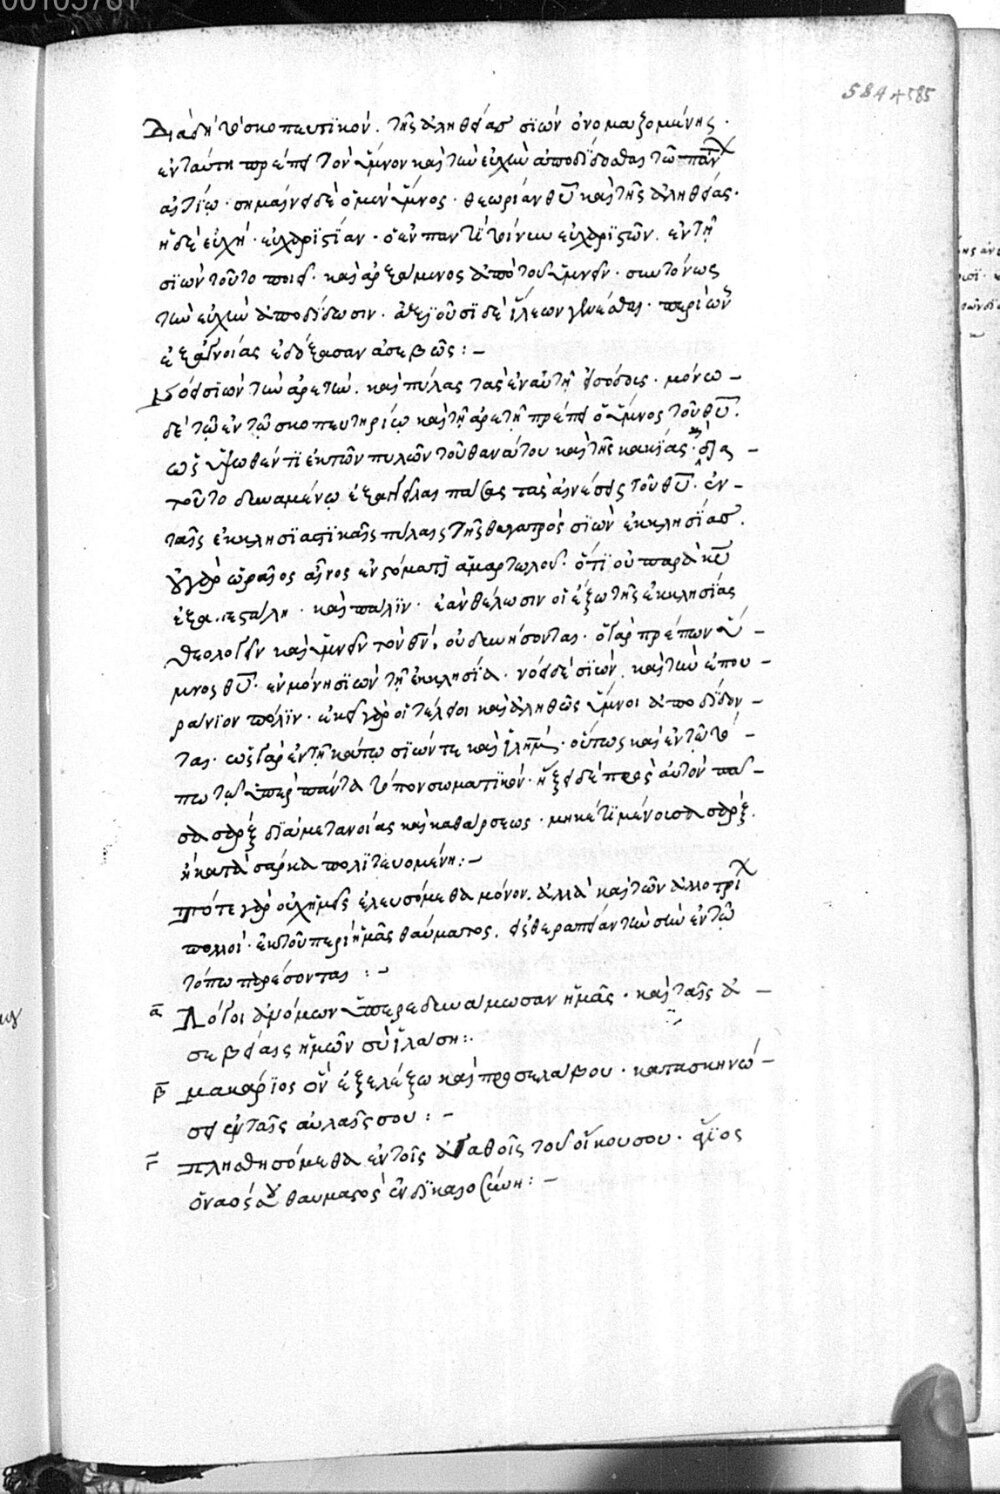 584 + 585
Διὰ δὴ τὸ σκοπευτϊκόν. τῆς ἀληθείας σϊὼν ὀνομαζομένης.
ἐν ταύτη πρέπει τὸν ὕμνον καὶ τὴν εὐχὴν ἀποδίδοσθαι τῶ
αἰτίῳ. σημαίνει δὲ ὁ μὲν ὕμνος. θεωρίαν θυ καὶ τῆς ἀληθείας.
ἡ δὲ εὐχὴ. εὐχαρϊστίαν. ὁ ἐν παντὶ εὐχαρϊστῶν. ἐν τῆ
σϊὼν τοῦτο ποιεῖ. καὶ ἀρξάμενος ἀπὸ τοῦ ὑμνεῖν. συντόνως
τὴν εὐχὴν ἀποδίδωσιν. ἵλεων γενέσθαι. περὶ ὧν
ἐξ ἀγνοίας ἐδόξασαν ἀσεβῶς:-
Νόει σϊὼν τὴν ἀρετὴν. καὶ πύλας τὰς ἐν αὐτῆ εἰσόδους. μόνω -
δὲ τῶ ἐν τῶ σκοπευτηρίω καὶ τῆ ἀρετῆ πρέπει ὁ ὕμνος τοῦ θυ.
ὡς ὑψωθέντι ἐκ τῶν πυλῶν τοῦ θανάτου καὶ τῆς κακίας. διὰ -
τοῦτο δυναμένω ἐξαγγεῖλαι πάσας τὰς αἰνέσεις τοῦ θυ. ἐν -
ταῖς ἐκκλησϊαστϊκαῖς πύλαις τῆς θυγατρὸς σϊὼν ἐκκλησίας.
οὐ γὰρ ὡραῖος αἶνος ἐν στόματι ἁμαρτωλοῦ. ὅτϊ οὐ παρὰ κυ
καὶ πάλϊν. ἐὰν θέλωσιν οἱ ἔξω τῆς ἐκκλησίας
θεολογεῖν καὶ ὑμνεῖν τὸν θν, οὐ δυνήσονται. ὁ γὰρ πρέπων ὕ -
μνος θυ. ἐν μόνη σϊὼν τῆ ἐκκλησία. νόει δὲ σϊὼν. καὶ τὴν ἐπου -
ράνϊον πόλϊν. ἐκεῖ γὰρ οἱ τέλειοι καὶ ἀληθῶς ὕμνοι ἀποδίδον -
ται. ὡς γὰρ ἐν τῆ κάτω σϊών τε καὶ ϊλημ. οὕτως καὶ ἐν τῶ τό -
πω τῶ ὑπὲρ πάντα τόπον σωματϊκόν. ἥξει δὲ πρὸς αὐτὸν πᾶ -
σα σὰρξ δϊὰ μετανοίας καὶ καθάρσεως. μηκέτϊ μένουσα σὰρξ.
ἢ κατὰ σάρκα πολϊτευομένη:-
Τότε γὰρ οὐχ ἡμεῖς ἐλευσόμεθα μόνον. ἀλλὰ καὶ τῶν ἀλλοτρί
πολλοὶ. ἐκ τοῦ περὶ ἡμᾶς θαύματος. εἰς θεραπείαν τὴν σὴν ἐν τῶ
τόπω παρέσονται:-
α Λόγοι ἀνόμων ὑπερεδυνάμωσαν ἡμᾶς. καὶ ταῖς ἀ -
σεβείαις ἡμῶν σὺ ϊλάση:.
β μακάρϊος ὃν ἐξελέξω καὶ προσελάβου. κατασκηνώ -
σει ἐν ταῖς αὐλαῖς σου:-
γ πλησθησόμεθα ἐν τοῖς ἀγαθοῖς τοῦ οἴκου σου. ἅγϊος
ὁ ναός σου θαυμαστὸς ἐν δϊκαιοσύνη:-